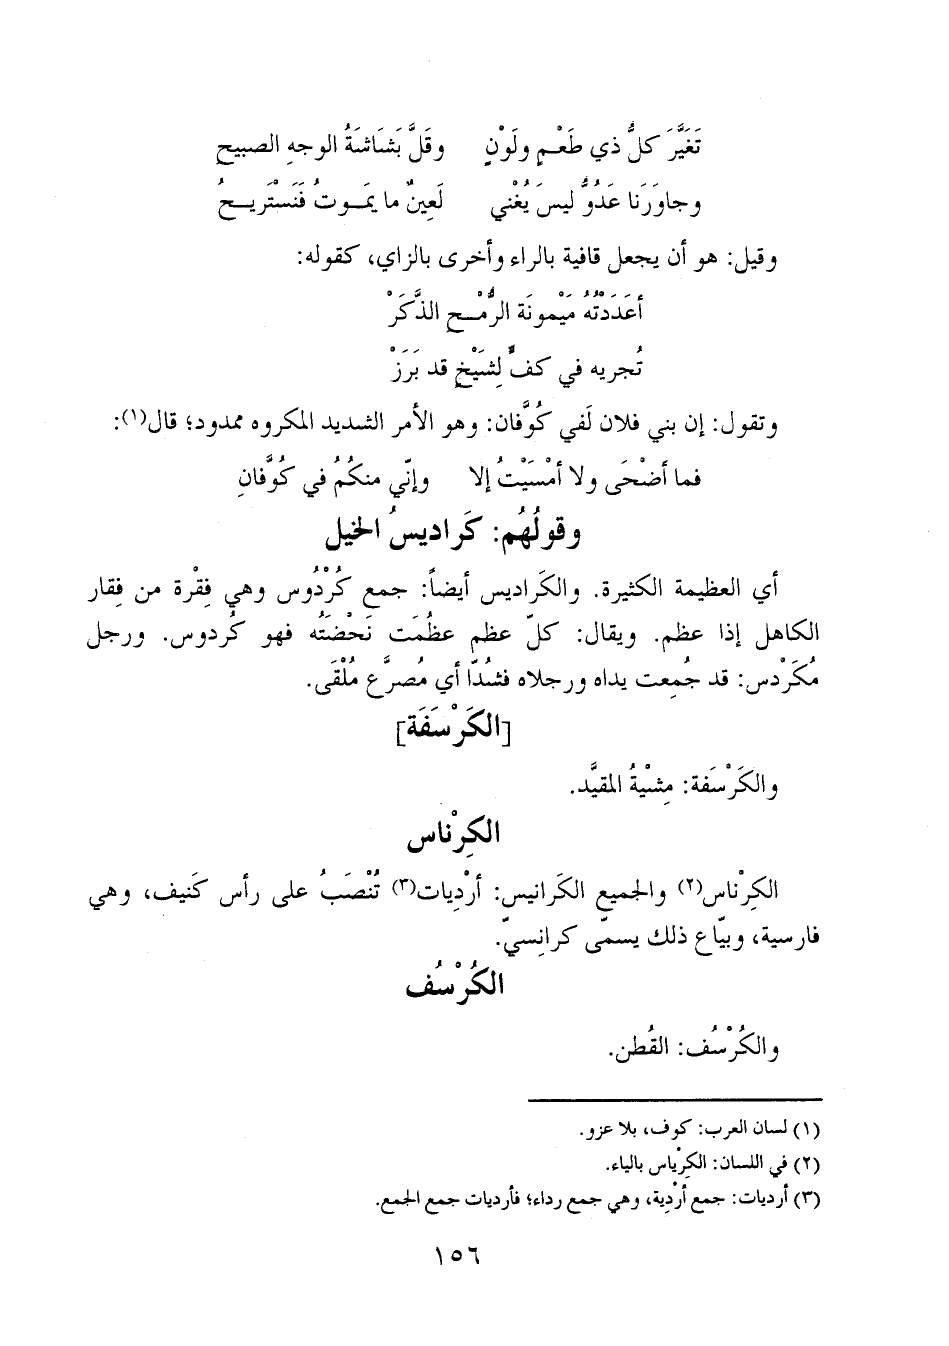 تَغَيَّرَ كلُّ ذي طَعْـمٍ ولَوْنٍ وقَلَّ بَشَاشَةُ الوجهِ الصبيحِ
وجاوَرَنا عَدُوٌّ ليسَ يُغْني لَعِينٌ ما يَمـوتُ فَنَسْتَريـحُ
وقيل: هو أن يجعل قافية بالراء وأخرى بالزاي، كقوله:
أعَدَدْتُهُ مَيْمونَة الرُّمْـحِ الذَّكَرْ
تُجريه في كفٌ لِشَيْخٍ قد بَرَزْ
وتقول: إن بني فلان لَفي كُوَّفان: وهو الأمر الشديد المكروه ممدود؛ قال(١):
فما أضْحَى ولا أمْسَيْتُ إلا وإنّي منكُمُ في كُوَّفانِ
وقولُهُم: كَراديسُ الخيل
أي العظيمة الكثيرة. والكَراديس أيضاً: جمع كُرْدُوس وهي فِقْرة من فِقار
الكاهل إذا عظم. ويقال: كلّ عظم عظُمَت نَحْضَتُه فهو كُردوس. ورجل
مُكَرْدس: قد جُمِعت يداه ورجلاه فشُدّا أي مُصرَّع مُلْقَى.
[الكَرْسَفَة]
والكَرْسَفة: مِشْيَةُ المقيَّد.
الكِرْناس
الكِرْناس(٢) والجميع الكَرانيس: أرْدِيات(٣) تُنْصَبُ على رأس كَنيف، وهي
فارسية، وبيّاع ذلك يسمّى كرانِسيّ.
الكُرْسُف
والكُرْسُف: القُطن.
(١) لسان العرب: كوف، بلا عزو.
(٢) في اللسان: الكِرْياس بالياء.
(٣) أرديات: جمع أرْدِية، وهي جمع رداء؛ فأرديات جمع الجمع.
١٥٦